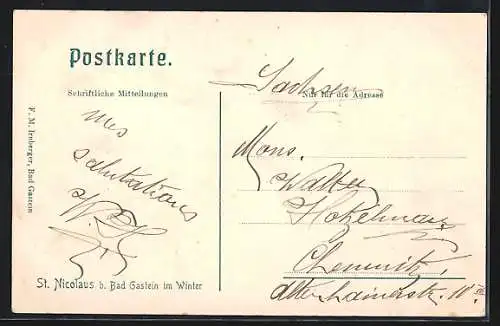 Postkarte.
Schriftliche Mitteilungen
Nur für die Adresse
Sachsen
mes
salutations
Mons.
Walter
Chemnitz,
St. Nicolaus b. Bad Gastein im Winter
F. M. Irnberger, Bad Gastein